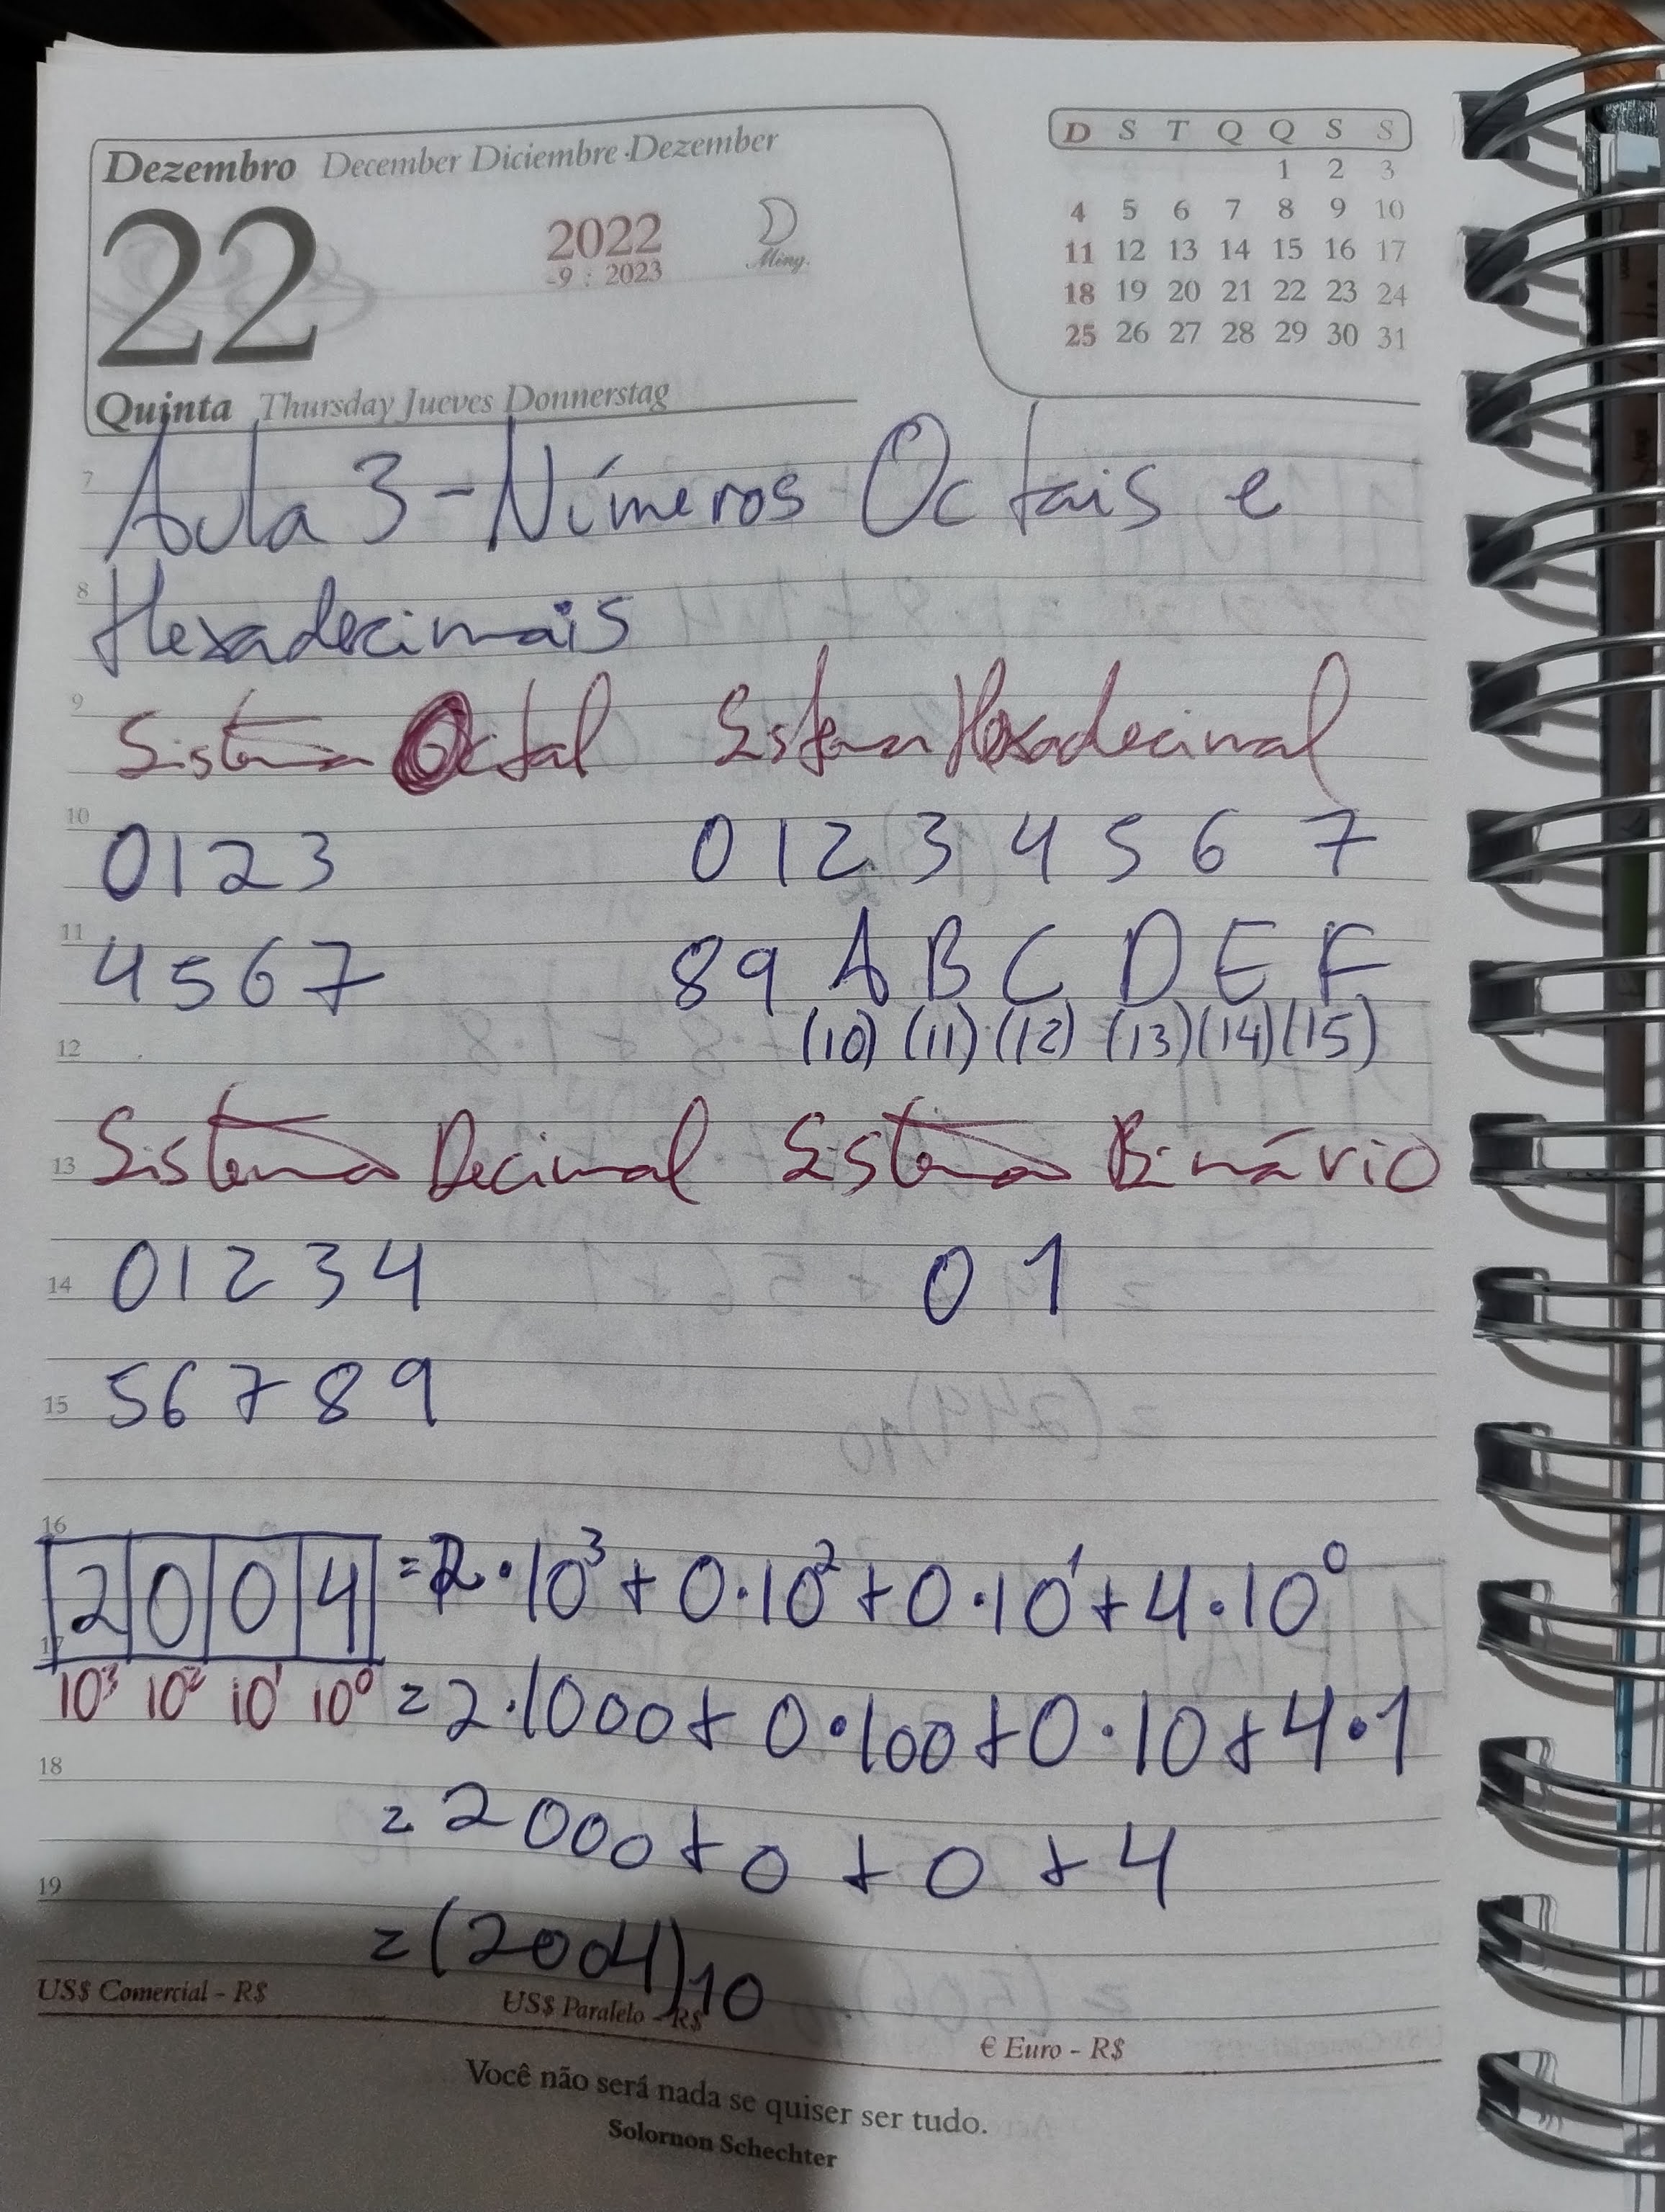 Dezembro December Diciembre Dezember
22
2022
-9 : 2023
Ming.
Quinta Thursday Jueves Donnerstag
D S T Q Q S S
1 2 3
4 5 6 7 8 9 10
11 12 13 14 15 16 17
18 19 20 21 22 23 24
25 26 27 28 29 30 31
7
Aula 3 - Números Octais e
8
Hexadecimais
9
Sistema Octal Sistema Hexadecimal
10
0 1 2 3 0 1 2 3 4 5 6 7
11
4 5 6 7 8 9 A B C D E F
12
(10) (11) (12) (13) (14) (15)
13
Sistema Decimal Sistema Binário
14
0 1 2 3 4 0 1
15
5 6 7 8 9
16
2 0 0 4 = 2·10³ + 0·10² + 0·10¹ + 4·10⁰
17
10³ 10² 10¹ 10⁰ = 2·1000 + 0·100 + 0·10 + 4·1
18
= 2000 + 0 + 0 + 4
19
= (2004)10
US$ Comercial - R$ US$ Paralelo - R$ € Euro - R$
Você não será nada se quiser ser tudo.
Solornon Schechter